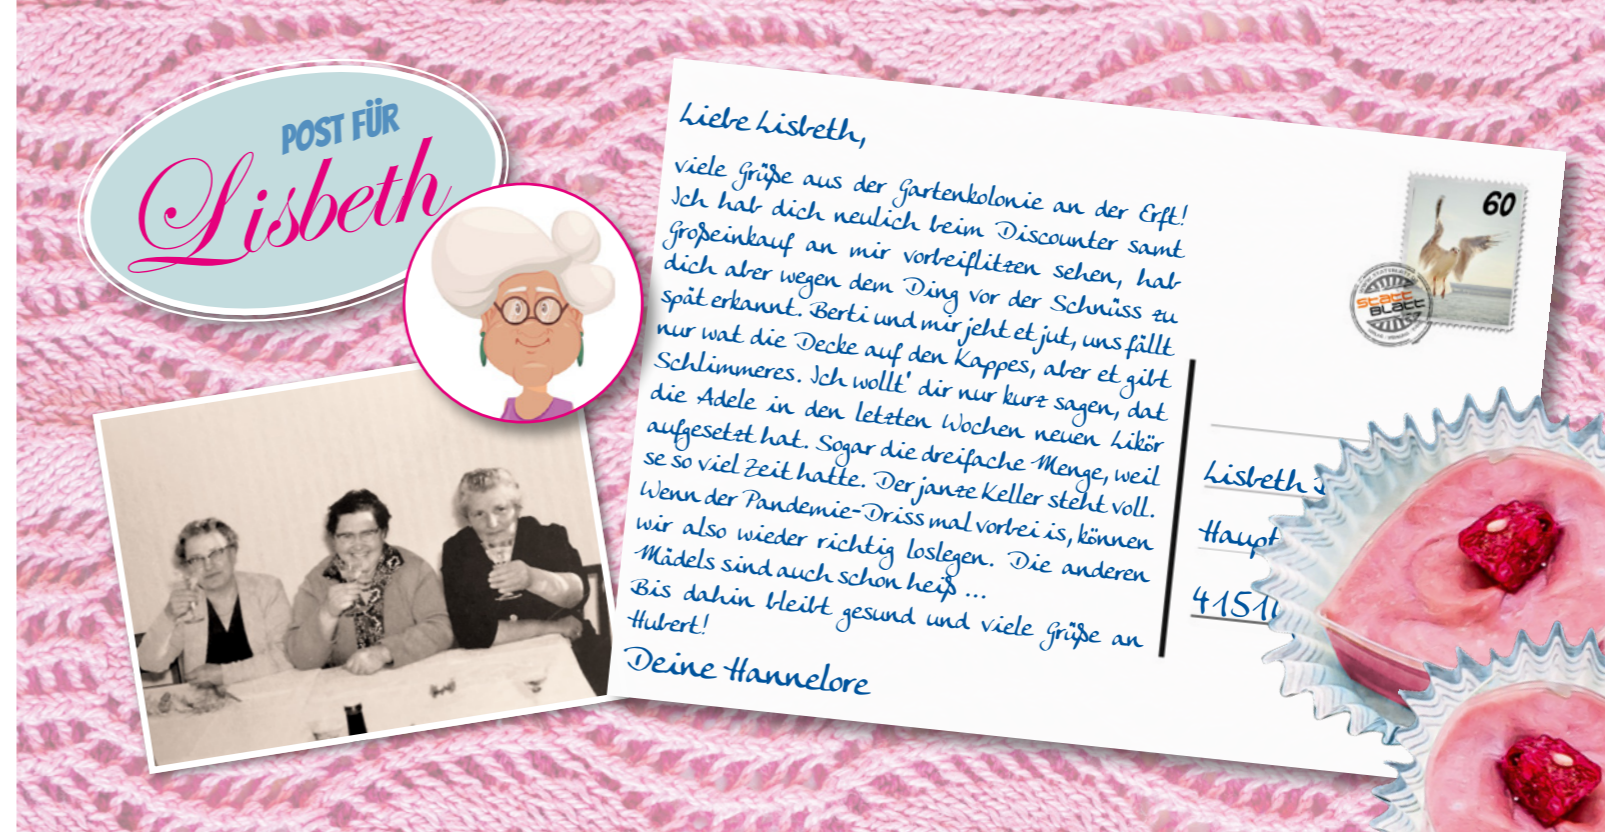 POST FÜR
Lisbeth
Liebe Lisbeth,
viele Grüße aus der Gartenkolonie an der Erft!
Ich hab dich neulich beim Discounter samt
Großeinkauf an mir vorbeiflitzen sehen, hab
dich aber wegen dem Ding vor der Schnüss zu
spät erkannt. Berti und mir jeht et jut, uns fällt
nur wat die Decke auf den Kappes, aber et gibt
Schlimmeres. Ich wollt' dir nur kurz sagen, dat
die Adele in den letzten Wochen neuen Likör
aufgesetzt hat. Sogar die dreifache Menge, weil
se so viel Zeit hatte. Der janze Keller steht voll.
Wenn der Pandemie-Driss mal vorbei is, können
wir also wieder richtig loslegen. Die anderen
Mädels sind auch schon heiß ...
Bis dahin bleibt gesund und viele Grüße an
Hubert!
Deine Hannelore
60
STATT
BLATT
Lisbeth
Haupt
4151